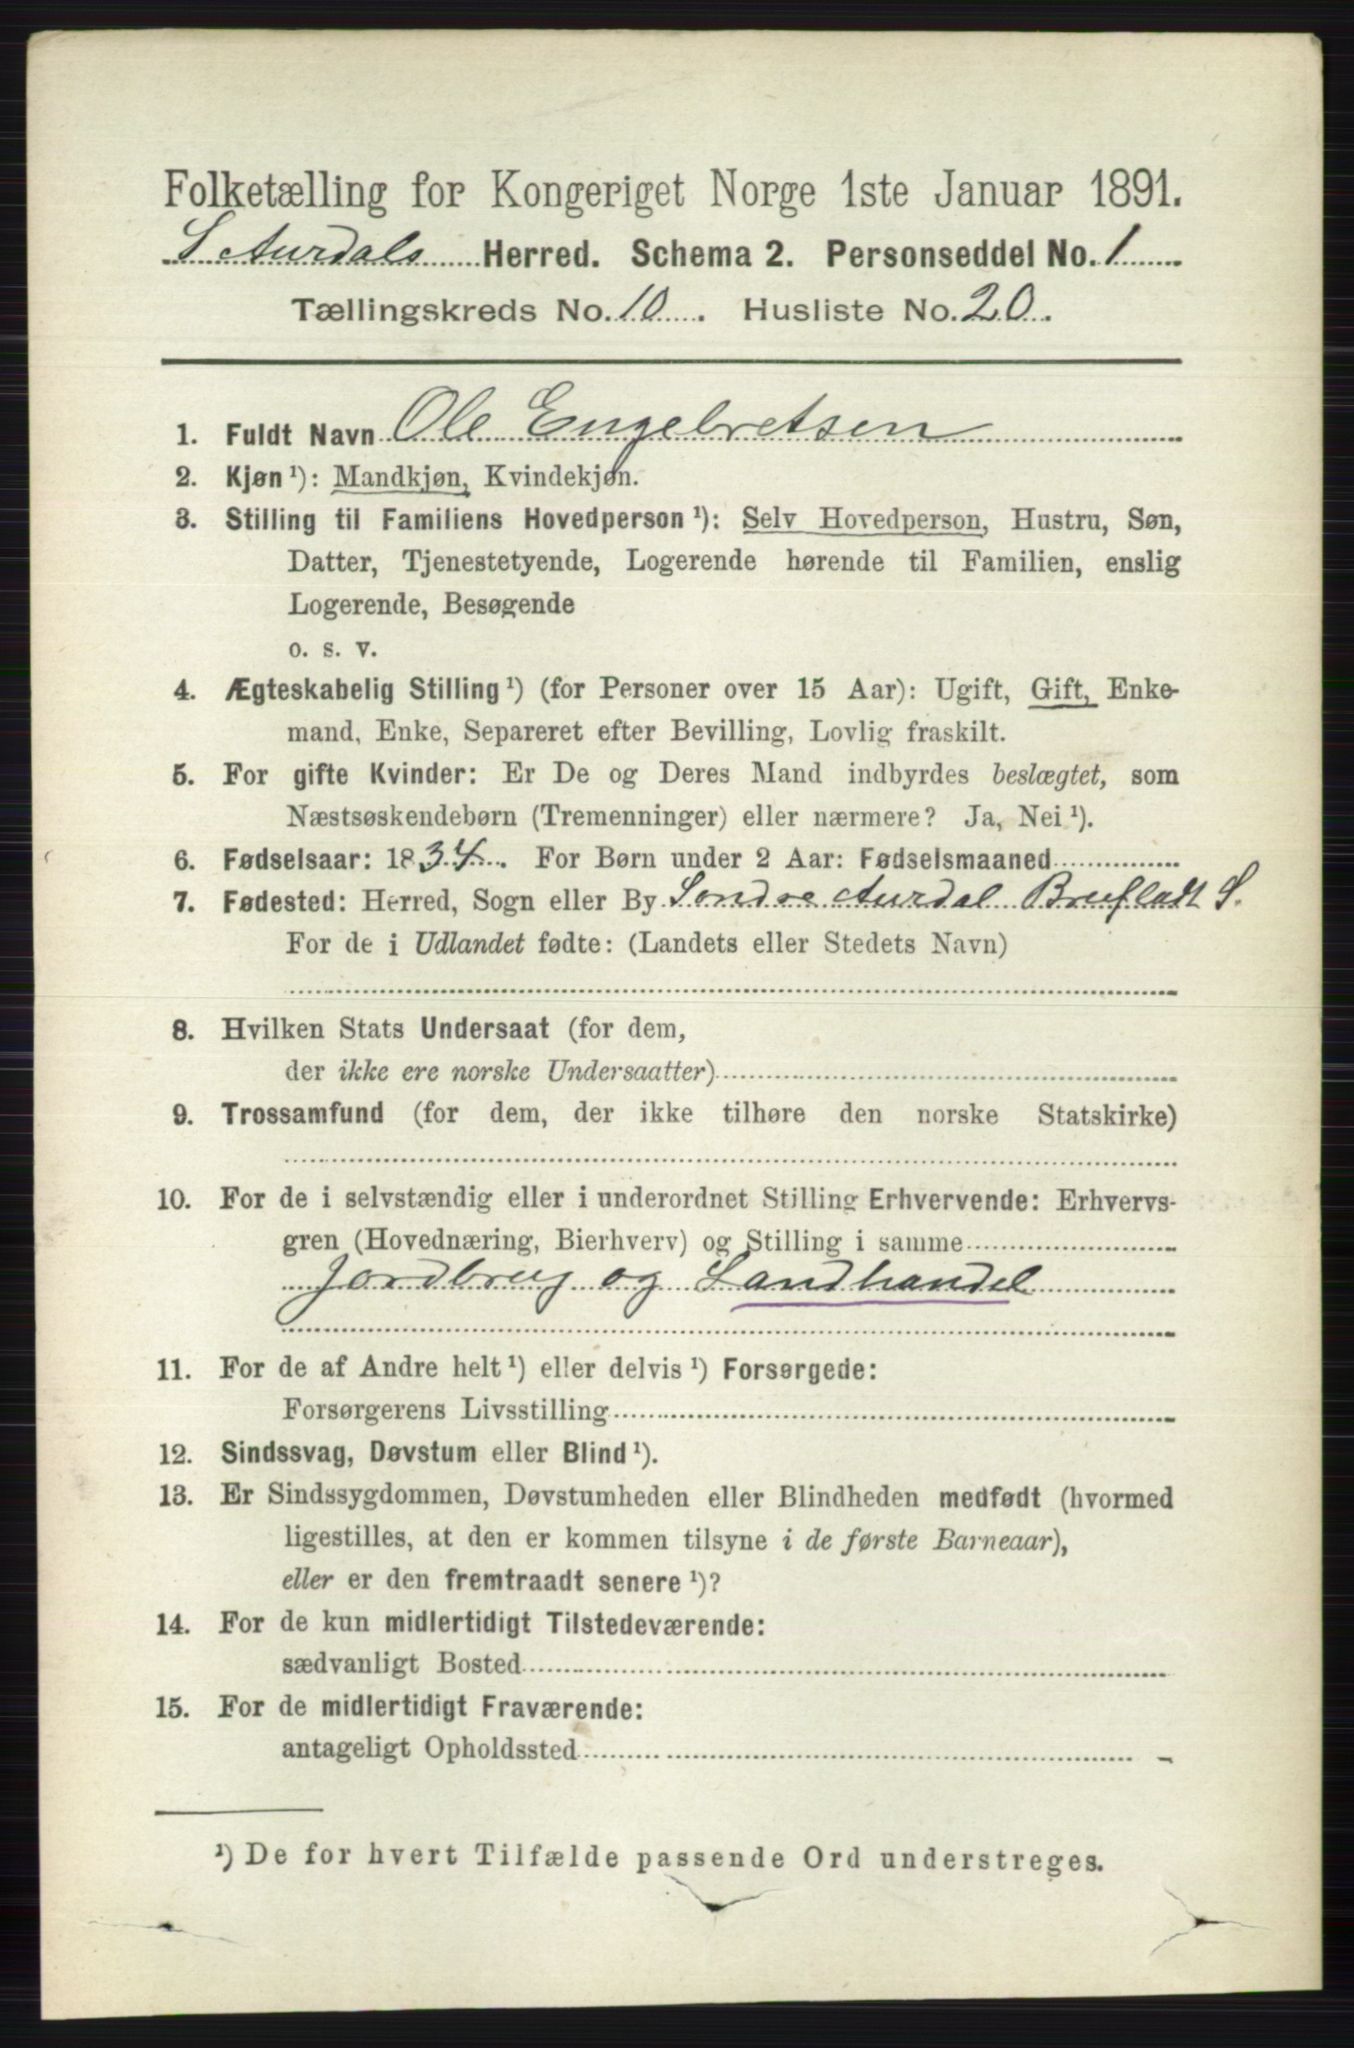 Folketælling for Kongeriget Norge 1ste Januar 1891.
S Aurdals Herred. Schema 2. Personseddel No. 1
Tællingskreds No. 10. Husliste No. 20.
1. Fuldt Navn Ole Engebretsen
2. Kjøn ¹): Mandkjøn, Kvindekjøn.
3. Stilling til Familiens Hovedperson ¹): Selv Hovedperson, Hustru, Søn,
Datter, Tjenestetyende, Logerende hørende til Familien, enslig
Logerende, Besøgende
o. s. v.
4. Ægteskabelig Stilling ¹) (for Personer over 15 Aar): Ugift, Gift, Enke-
mand, Enke, Separeret efter Bevilling, Lovlig fraskilt.
5. For gifte Kvinder: Er De og Deres Mand indbyrdes beslægtet, som
Næstsøskendebørn (Tremenninger) eller nærmere? Ja, Nei ¹).
6. Fødselsaar: 1834. For Børn under 2 Aar: Fødselsmaaned
7. Fødested: Herred, Sogn eller By Søndre Aurdal Brufladt S.
For de i Udlandet fødte: (Landets eller Stedets Navn)
8. Hvilken Stats Undersaat (for dem,
der ikke ere norske Undersaatter)
9. Trossamfund (for dem, der ikke tilhøre den norske Statskirke)
10. For de i selvstændig eller i underordnet Stilling Erhvervende: Erhvervs-
gren (Hovednæring, Bierhverv) og Stilling i samme
Jordbrug og Landhandel
11. For de af Andre helt ¹) eller delvis ¹) Forsørgede:
Forsørgerens Livsstilling
12. Sindssvag, Døvstum eller Blind ¹).
13. Er Sindssygdommen, Døvstumheden eller Blindheden medfødt (hvormed
ligestilles, at den er kommen tilsyne i de første Barneaar),
eller er den fremtraadt senere ¹)?
14. For de kun midlertidigt Tilstedeværende:
sædvanligt Bosted
15. For de midlertidigt Fraværende:
antageligt Opholdssted
¹) De for hvert Tilfælde passende Ord understreges.